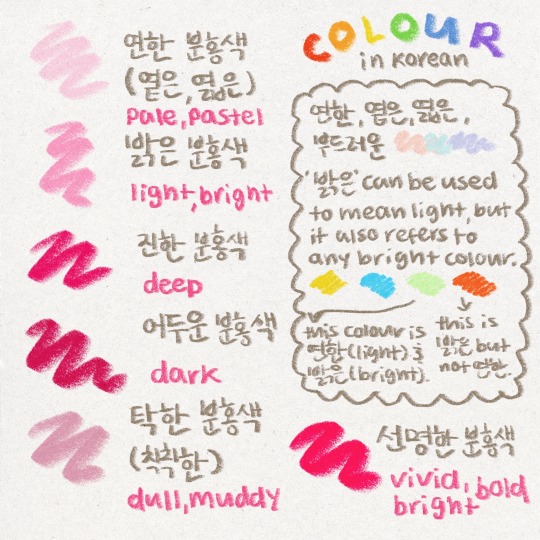 연한 분홍색
(옅은, 엷은)
pale, pastel
밝은 분홍색
light, bright
진한 분홍색
deep
어두운 분홍색
dark
탁한 분홍색
(칙칙한)
dull, muddy
COLOUR
in Korean
연한, 옅은, 엷은,
부드러운
'밝은' can be used
to mean light, but
it also refers to
any bright colour.
this colour is
연한(light) &
밝은(bright).
this is
밝은 but
not 연한.
선명한 분홍색
vivid, bold
bright